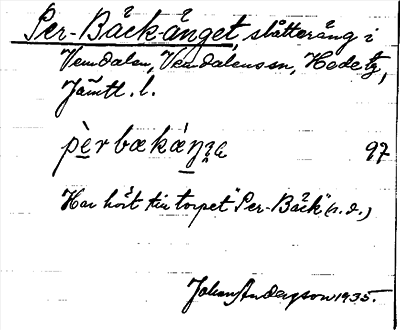 Per-Bäck-änget, slåtteräng i
Vemdalen, Vemdalens sn, Hede tg,
Jämtl. l.
pèrbækæŋə 97
Har hört till torpet "Per-Bäck" (s.d.)
Johan Anderson 1935.